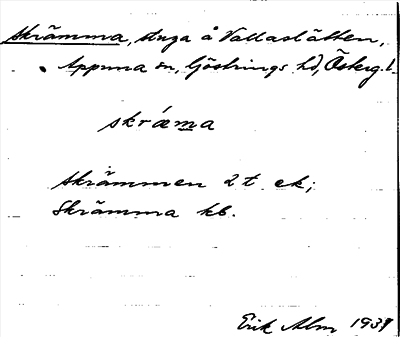 Skrämma, stuga å Vallaslätten,
Appuna sn, Göstrings hd, Österg. l.
skrǽma
Skrämmen 2 t ek;
Skrämma kb.
Erik Alm 1939